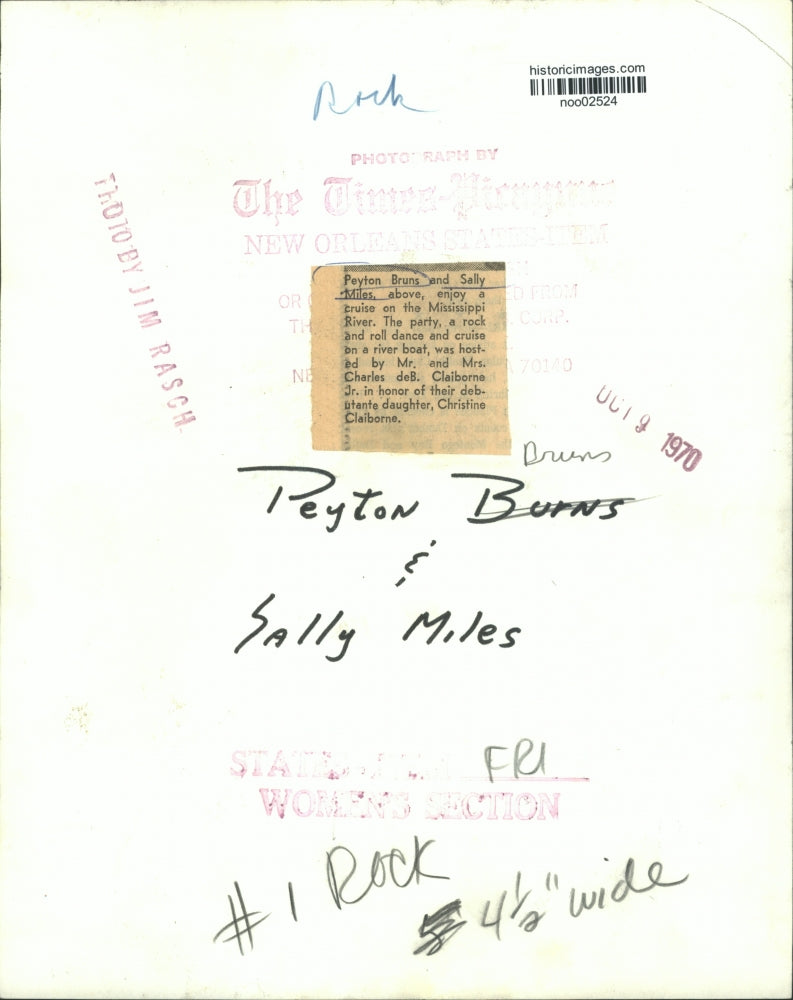 historicimages.com
noo02524
Rock
PHOTOGRAPH BY
The Times-Picayune
NEW ORLEANS STATES-ITEM
PHOTO BY JIM RASCH
OR
ED FROM
TH
CORP.
NE
70140
Peyton Bruns and Sally
Miles, above, enjoy a
cruise on the Mississippi
River. The party, a rock
and roll dance and cruise
on a river boat, was host-
ed by Mr. and Mrs.
Charles deB. Claiborne
Jr. in honor of their deb-
utante daughter, Christine
Claiborne.
OCT 9 1970
Bruns
Peyton Burns
&
Sally Miles
STATES-ITEM FRI
WOMEN'S SECTION
#1 Rock
4½" wide